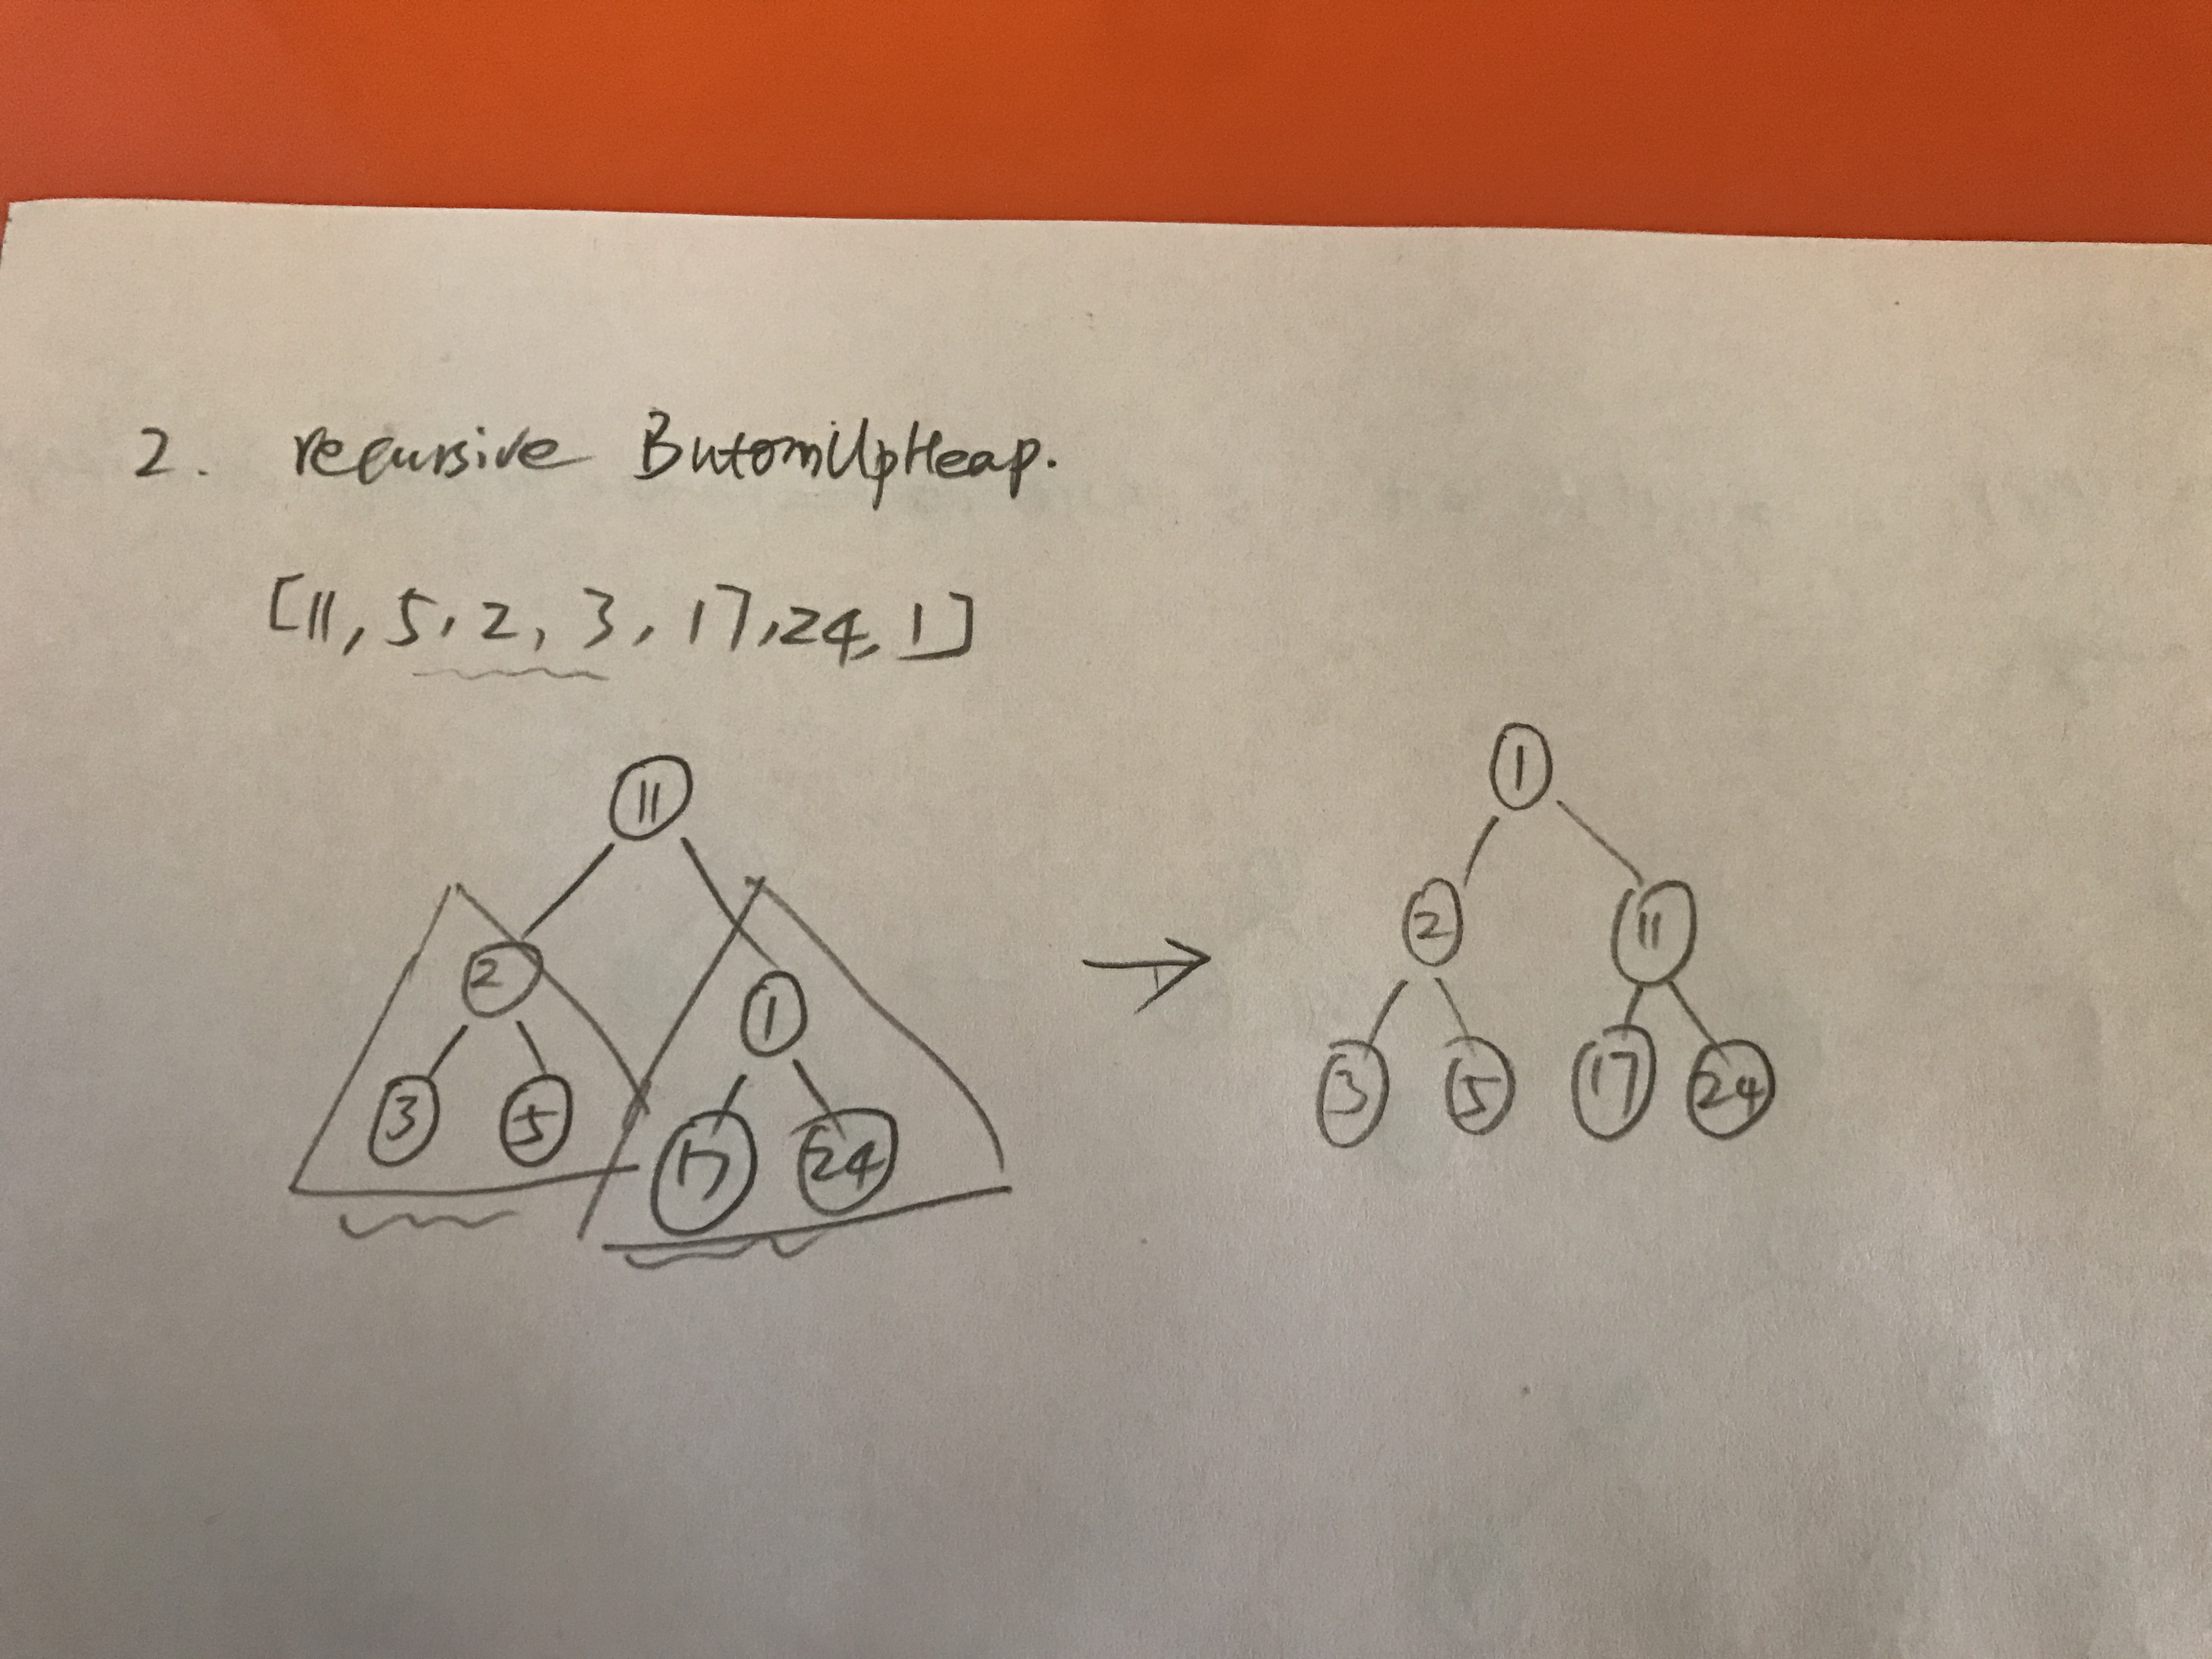 2. recursive ButtomUpHeap.
[11, 5, 2, 3, 17, 24, 1]
11
2 1
3 5 17 24
1
2 11
3 5 17 24